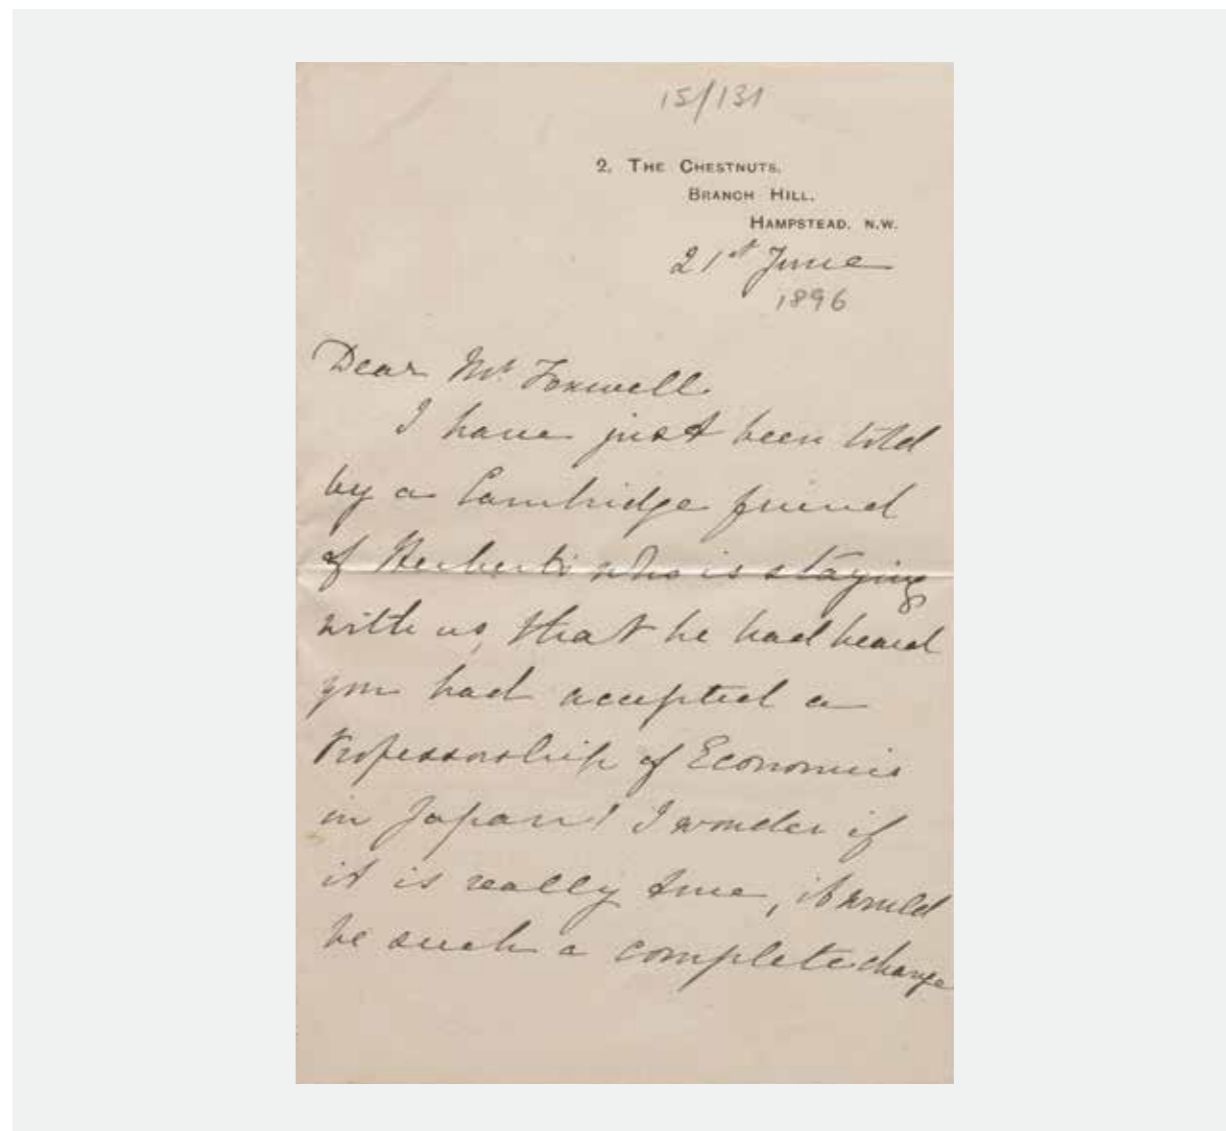 15/131
2, THE CHESTNUTS,
BRANCH HILL,
HAMPSTEAD. N.W.
21st June
1896
Dear Mr Foxwell
I have just been told
by a Cambridge friend
of Herbert's who is staying
with us, that he had heard
you had accepted a
Professorship of Economics
in Japan! I wonder if
it is really true, it would
be such a complete change